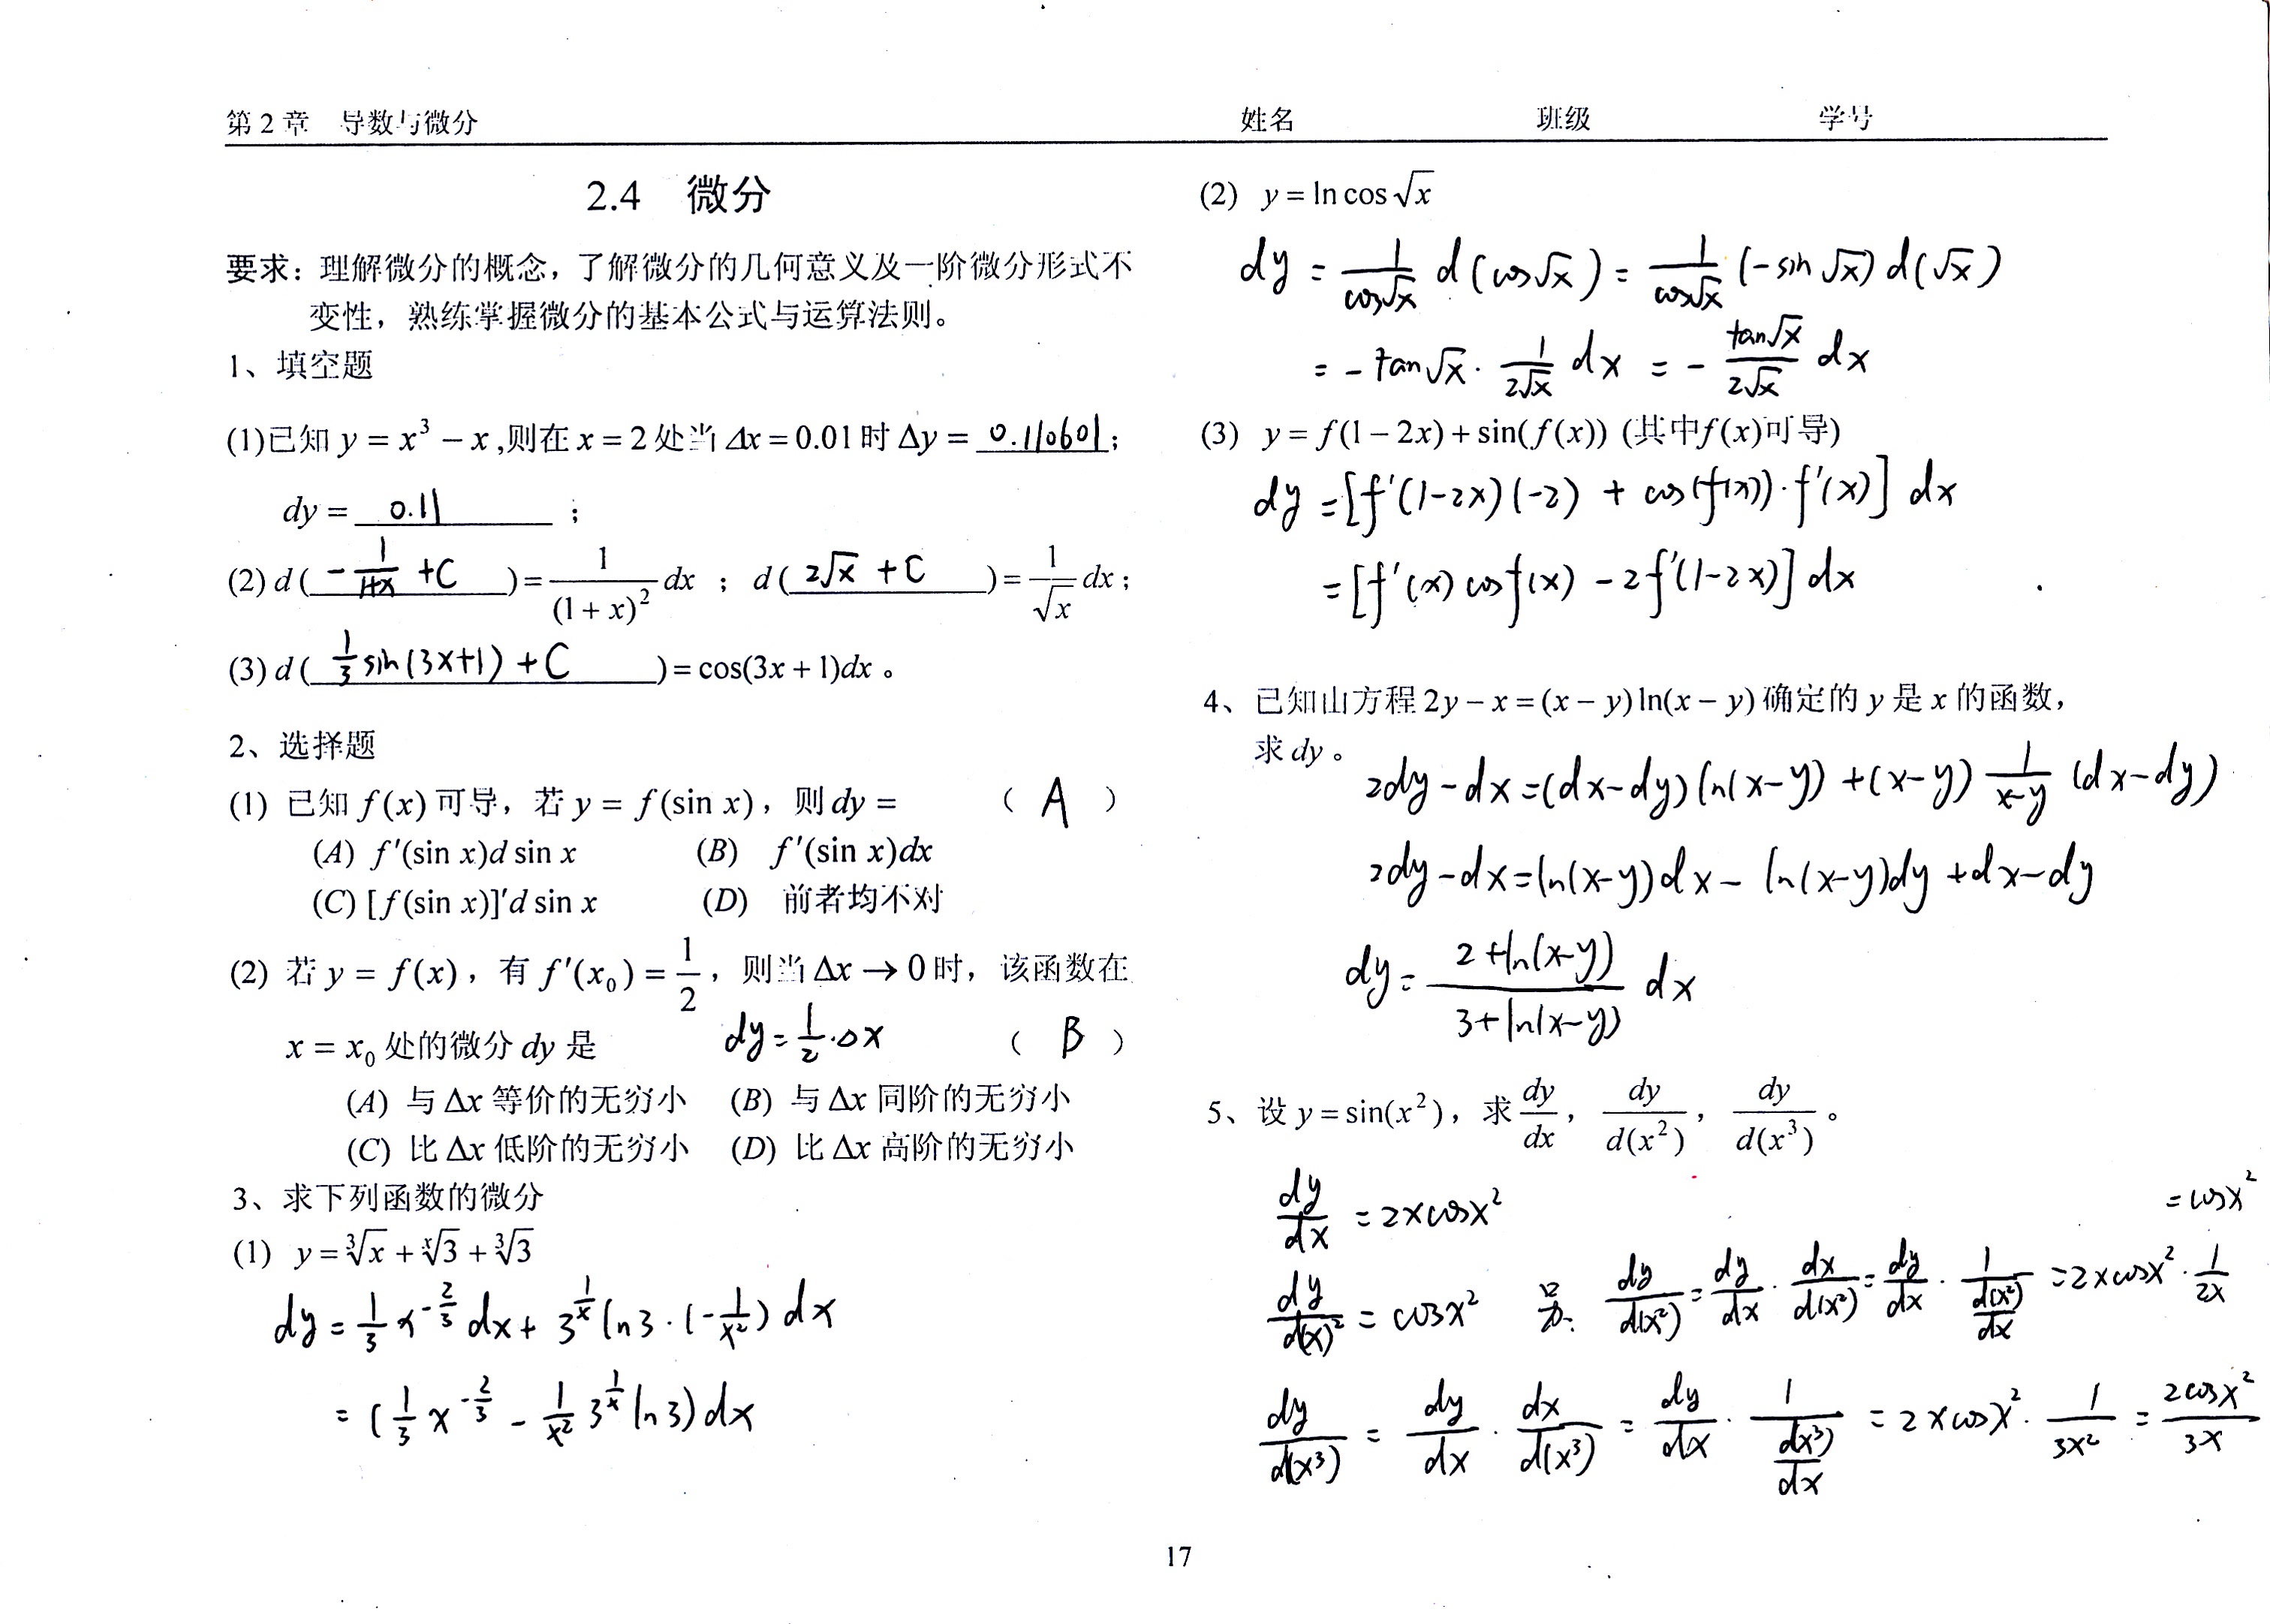 第2章 导数与微分 姓名 班级 学号
2.4 微分
要求：理解微分的概念，了解微分的几何意义及一阶微分形式不
变性，熟练掌握微分的基本公式与运算法则。
1、填空题
(1)已知 y = x³ − x ,则在 x = 2 处当 Δx = 0.01 时 Δy = 0.110601 ;
dy = 0.11 ;
(2) d ( −1/(1+x) + C ) = 1/(1 + x)² dx ; d ( 2√x + C ) = 1/√x dx ;
(3) d ( 1/3 sin(3x+1) + C ) = cos(3x + 1)dx 。
2、选择题
(1) 已知 f(x) 可导，若 y = f(sin x)，则 dy = ( A )
(A) f′(sin x)d sin x (B) f′(sin x)dx
(C) [f(sin x)]′d sin x (D) 前者均不对
(2) 若 y = f(x)，有 f′(x₀) = 1/2，则当 Δx → 0 时，该函数在
x = x₀ 处的微分 dy 是 dy = 1/2·Δx ( B )
(A) 与 Δx 等价的无穷小 (B) 与 Δx 同阶的无穷小
(C) 比 Δx 低阶的无穷小 (D) 比 Δx 高阶的无穷小
3、求下列函数的微分
(1) y = ∛x + ˣ√3 + ∛3
dy = 1/3 x^(-2/3) dx + 3^(1/x) ln3 · (−1/x²) dx
= (1/3 x^(-2/3) − 1/x² 3^(1/x) ln3) dx
(2) y = ln cos √x
dy = 1/cos√x d(cos√x) = 1/cos√x (−sin√x) d(√x)
= −tan√x · 1/(2√x) dx = − tan√x/(2√x) dx
(3) y = f(1 − 2x) + sin(f(x)) (其中f(x)可导)
dy = [f′(1−2x)(−2) + cos(f(x))·f′(x)] dx
= [f′(x) cosf(x) − 2f′(1−2x)] dx
4、已知由方程 2y − x = (x − y)ln(x − y) 确定的 y 是 x 的函数，
求 dy 。
2dy − dx = (dx−dy) ln(x−y) + (x−y) 1/(x−y) (dx−dy)
2dy − dx = ln(x−y)dx − ln(x−y)dy + dx − dy
dy = (2+ln(x−y))/(3+ln(x−y)) dx
5、设 y = sin(x²)，求 dy/dx， dy/d(x²)， dy/d(x³) 。
dy/dx = 2xcosx²
= cosx²
dy/d(x)² = cosx² 另: dy/d(x²) = dy/dx · dx/d(x²) = dy/dx · 1/(d(x²)/dx) = 2xcosx² · 1/2x
dy/d(x³) = dy/dx · dx/d(x³) = dy/dx · 1/(d(x³)/dx) = 2xcosx² · 1/3x² = 2cosx²/3x
17